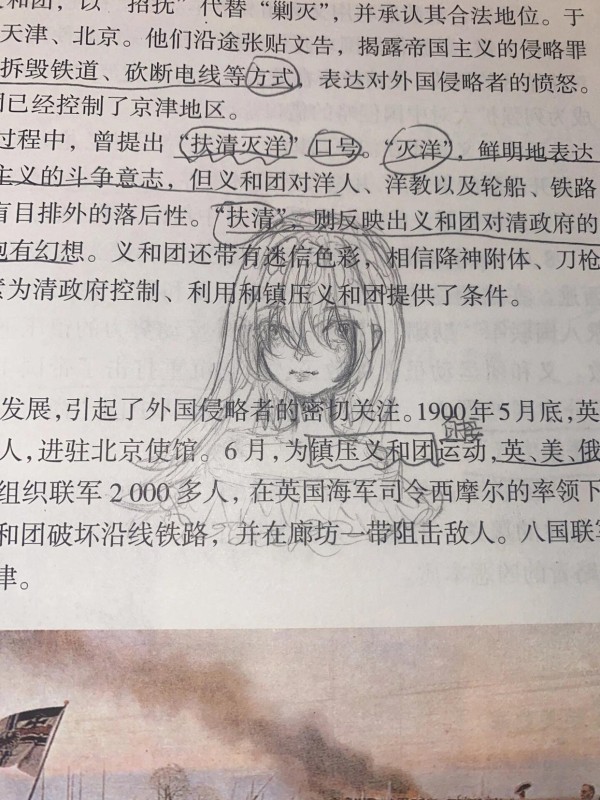 和团，以“招抚”代替“剿灭”，并承认其合法地位。于
天津、北京。他们沿途张贴文告，揭露帝国主义的侵略罪
拆毁铁道、砍断电线等方式，表达对外国侵略者的愤怒。
已经控制了京津地区。
过程中，曾提出“扶清灭洋”口号。“灭洋”，鲜明地表达
主义的斗争意志，但义和团对洋人、洋教以及轮船、铁路
盲目排外的落后性。“扶清”，则反映出义和团对清政府的
抱有幻想。义和团还带有迷信色彩，相信降神附体、刀枪
为清政府控制、利用和镇压义和团提供了条件。
发展，引起了外国侵略者的密切关注。1900年5月底，英
人，进驻北京使馆。6月，为镇压义和团运动，英、美、俄
组织联军2 000多人，在英国海军司令西摩尔的率领下
和团破坏沿线铁路，并在廊坊一带阻击敌人。八国联军
津。